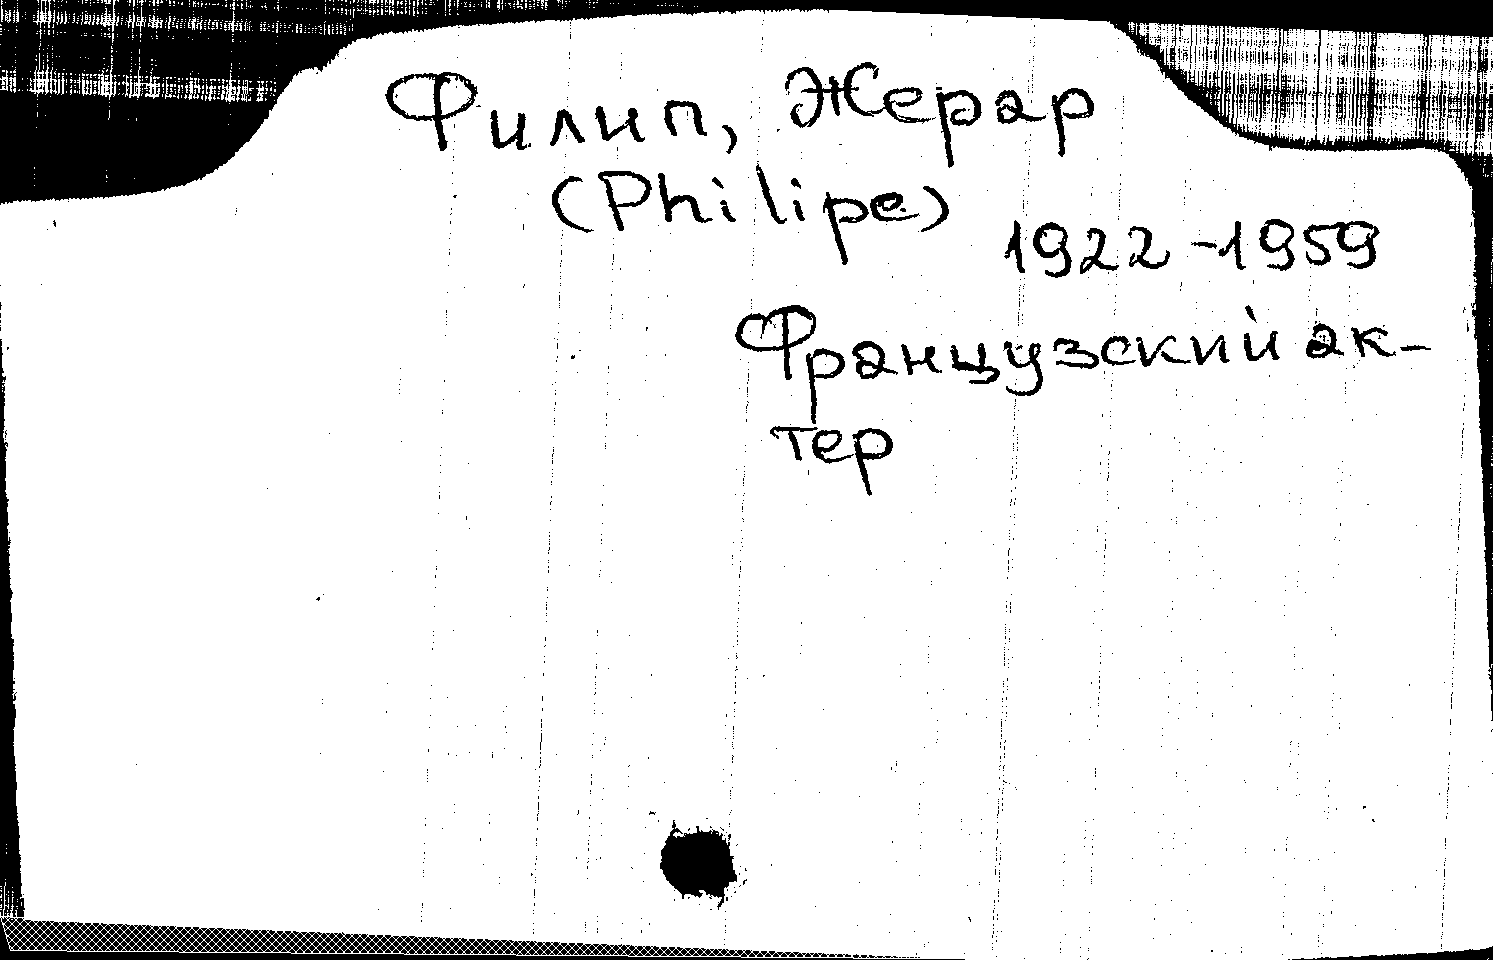 Филип, Жерар
(Philipe)
1922-1959
Французский ак-
тер